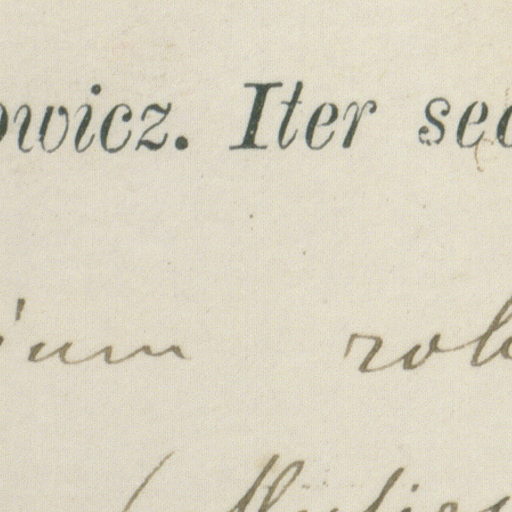 owicz. Iter sec
ium rob